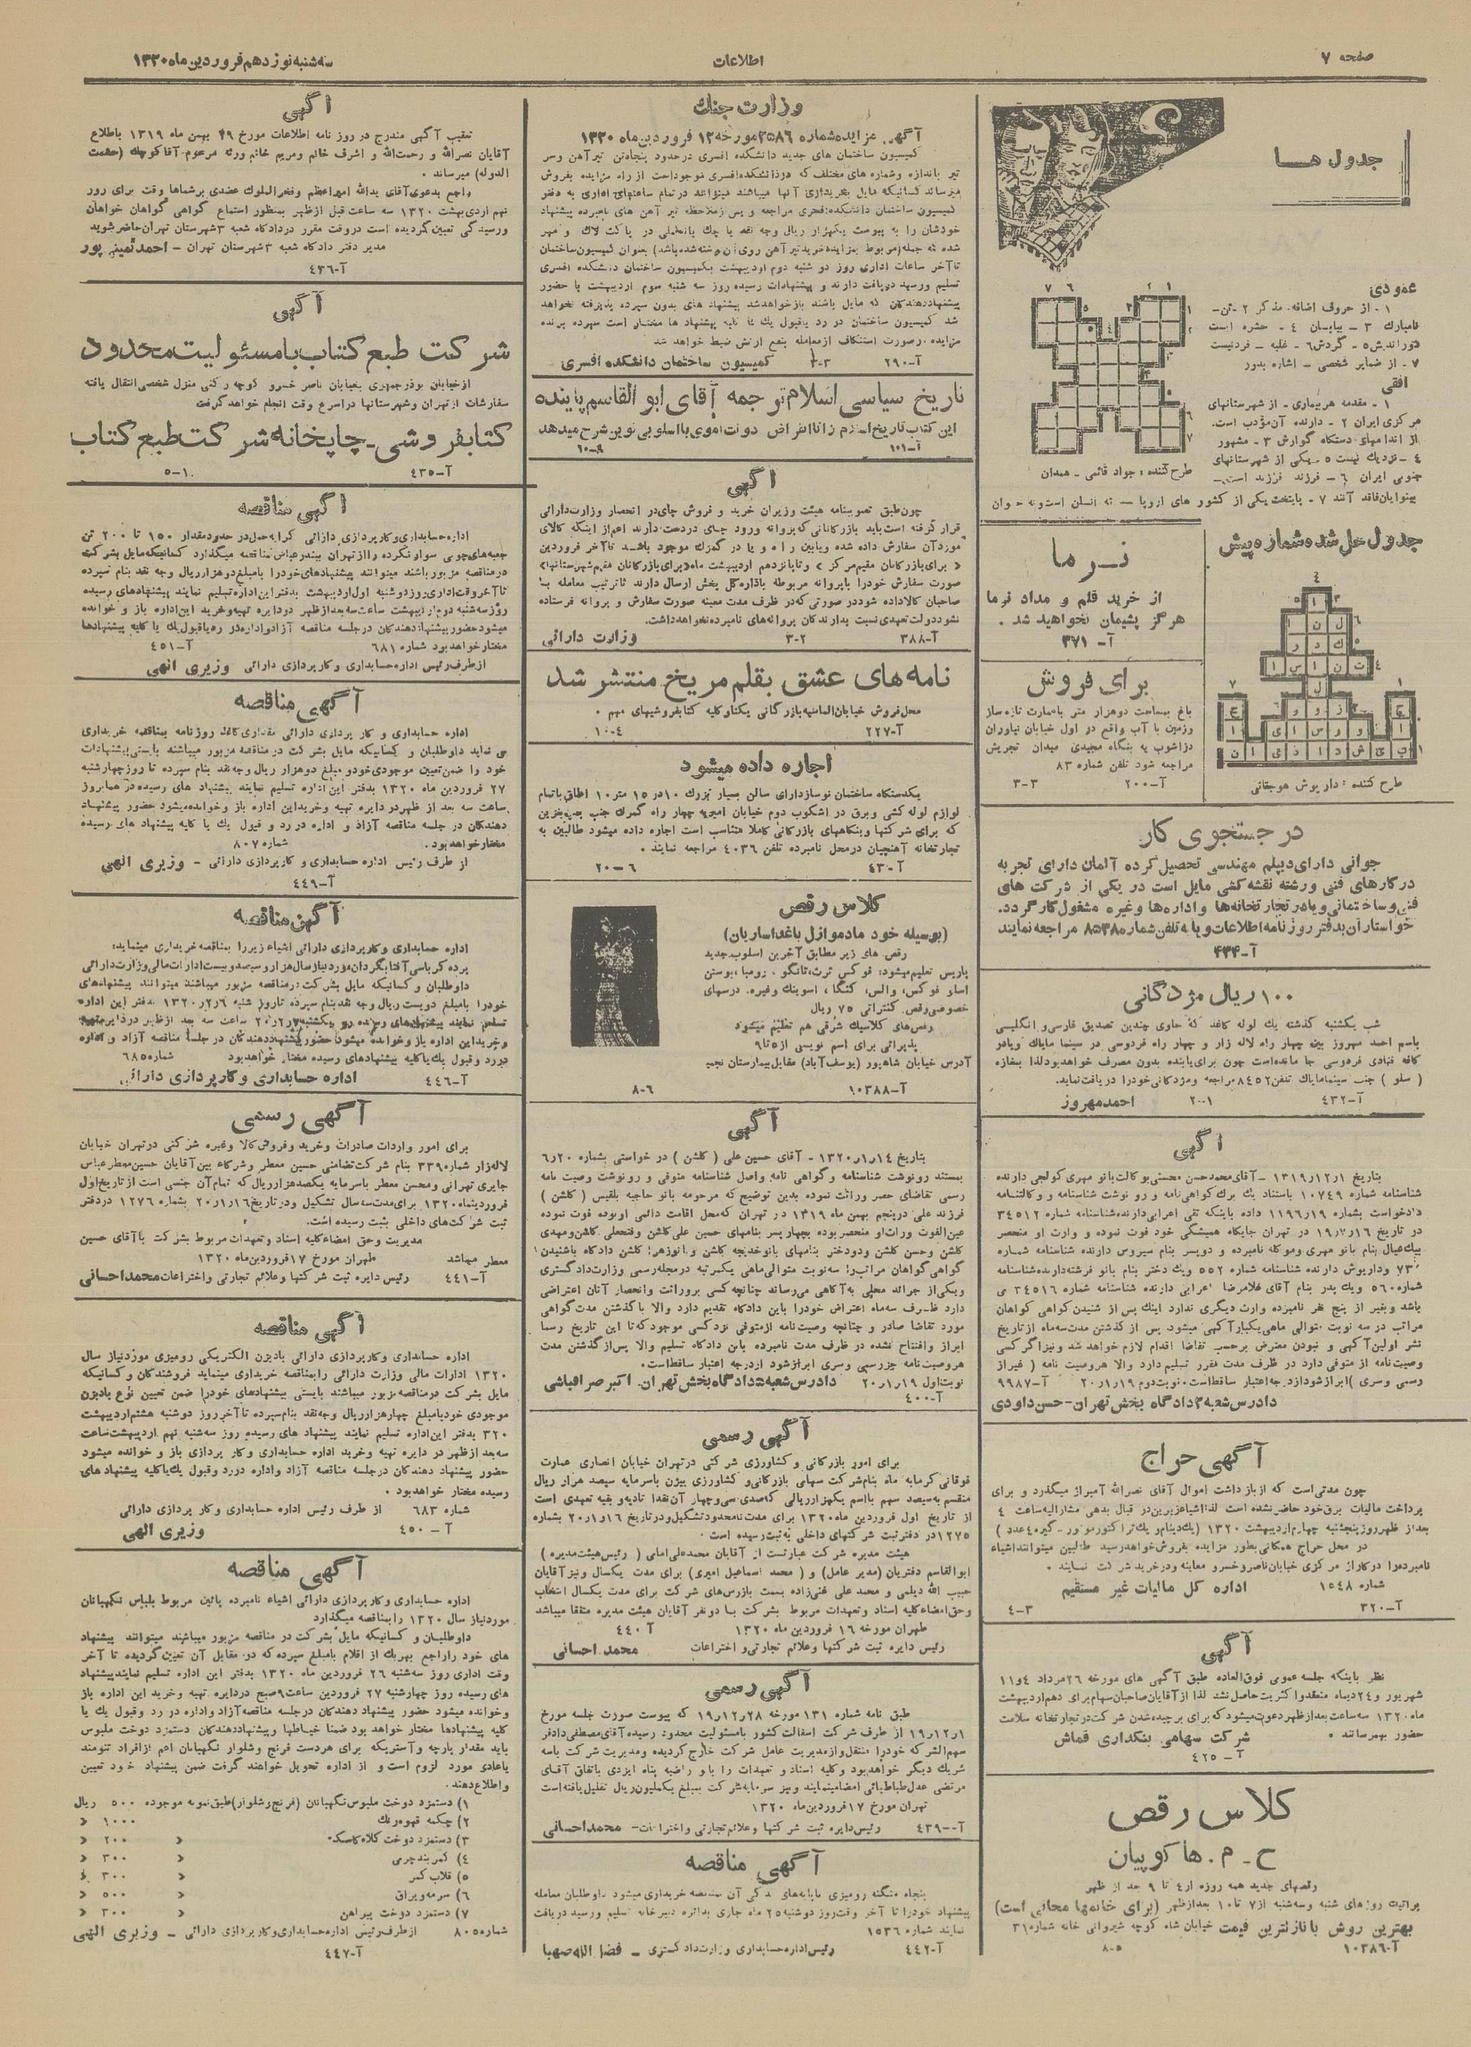 صفحه ۷
اطلاعات
سه‌شنبه نوزدهم فروردین ماه ۱۳۲۰
جدول ها
عمودی
۱ - از حروف اضافه. مذکر ۲ - تن-
۷ - از ضمایر شخصی - اشاره بدور
افقی
۱ - مقدمه هر بیماری - از شهرستانهای
مرکزی ایران ۲ - دارنده آن مؤدب است.
از اندامهای دستگاه گوارش ۳ - مشهور
٤ - نزدیک نیست ٥ - یکی از شهرستانهای
جنوبی ایران ٦ - فرزند فرزند است -
طرح کننده : جواد قائمی - همدان
جدول حل شده شماره پیش
طرح کننده : داریوش هوجقانی
نرما
از خرید قلم و مداد نرما
هرگز پشیمان نخواهید شد .
آ- ۳۷۱
برای فروش
باغ بمساحت دوهزار متر باعمارت تازه ساز
وزمین با آب واقع در اول خیابان نیاوران
دزاشوب به بنگاه مجیدی میدان تجریش
مراجعه شود تلفن شماره ۸۳
آ-۲۰۰ ۳-۳
در جستجوی کار
جوانی دارای دیپلم مهندسی تحصیل کرده آلمان دارای تجربه
در کارهای فنی ورشته نقشه کشی مایل است در یکی از شرکت های
فنی وساختمانی ویادر تجارتخانه‌ها واداره‌ها وغیره مشغول کار گردد.
خواستاران بدفتر روزنامه اطلاعات ویا به تلفن شماره ۸۵۳۸ مراجعه نمایند
آ-۴۳۴
۱۰۰ ریال مژدگانی
شب یکشنبه گذشته یك لوله کاغذ که حاوی چندین تصدیق فارسی و انگلیسی
باسم احمد مهروز بین چهار راه لاله زار و چهار راه فردوسی در سینما مایاك ویادر
کافه قنادی فردوسی جا مانده‌است چون برای یابنده بدون مصرف خواهد بود لذا بمغازه
( سلو ) جنب سینما مایاك تلفن ۸٤٥۲ مراجعه ومژدگانی خودرا دریافت نماید.
آ-٤۳۲ ۲-۱ احمد مهروز
آگهی
بتاریخ ۱ر۱۲ر۱۳۱۹ - آقای محمدحسن محسنی بوکالت بانو مهری کولجی دارنده
شناسنامه شماره ۱۰۷٤۹ باستناد یك برك گواهی‌نامه و رو نوشت شناسنامه و وکالتنامه
نشر اولین آگهی و نبودن معترض برحسب تقاضا اقدام لازم خواهد شد و نیز اگر کسی
وصیت نامه از متوفی دارد در ظرف مدت مقرر تسلیم دارد والا هر وصیت نامه ( غیر از
رسمی وسری ) ابراز شود از درجه اعتبار ساقط است. نوبت دوم ۱۹ر۱ر۲۰ آ-۹۹۸۷
دادرس شعبه ۳ دادگاه بخش تهران - حسن داودی
آگهی حراج
چون مدتی است که از بازداشت اموال آقای نصرالله آمیراز میگذرد و برای
پرداخت مالیات برق خود حاضر نشده است لذا اشیاء زیرین در قبال بدهی مشارالیه ساعت ٤
در محل حراج همگانی بطور مزایده بفروش خواهد رسید طالبین میتوانند اشیاء
نامبرده را در کاراژ مرکزی خیابان ناصرخسرو معاینه ودر خرید شرکت نمایند .
شماره ۱٥٤۸ اداره کل مالیات غیر مستقیم
آ-۳۲۰ ٤-۳
آگهی
نظر باینکه جلسه عمومی فوق‌العاده طبق آگهی های مورخه ۲٦ مرداد ٤ و ۱۱
شهریور و ۲٤ دیماه منعقد و اکثریت حاصل نشد لذا از آقایان صاحبان سهام برای دهم اردیبهشت
ماه ۱۳۲۰ سه ساعت بعد از ظهر دعوت میشود که برای برچیده شدن شرکت در تجارتخانه سلامت
حضور بهمرسانند . شرکت سهامی بنکداری قماش
آ - ٤۲٥
کلاس رقص
ح - م . هاکوپیان
رقصهای جدید همه روزه از ٤ تا ۹ بعد از ظهر
پراتیت روزهای شنبه وسه‌شنبه از ۷ تا ۱۰ بعد از ظهر (برای خانمها مجانی است)
بهترین روش با نازلترین قیمت خیابان شاه کوچه شیروانی خانه شماره ۳۱
آ-۱۰۳۸٦ ۸-٥
وزارت جنك
آگهی مزایده شماره ۲۵۸۶ مورخه ۱۲ فروردین ماه ۱۳۲۰
کمیسیون ساختمان های جدید دانشکده افسری در حدود پنجاه تن تیرآهن وسر
تیر باندازه و شماره های مختلف که در دانشکده افسری موجود است از راه مزایده بفروش
میرساند کسانیکه مایل بخریداری آنها میباشند میتوانند در تمام ساعتهای اداری به دفتر
کمیسیون ساختمان دانشکده افسری مراجعه و پس از ملاحظه تیر آهن های نامبرده پیشنهاد
خودشان را به پیوست یکهزار ریال وجه نقد یا چك بانك ملی در پاکت لاك و مهر
تا آخر ساعات اداری روز دو شنبه دوم اردیبهشت بکمیسیون ساختمان دانشکده افسری
تسلیم ورسید دریافت دارند و پیشنهادات رسیده روز سه شنبه سوم اردیبهشت با حضور
پیشنهاد دهندگان که مایل باشند باز خواهد شد پیشنهاد های بدون سپرده پذیرفته نخواهد
شد کمیسیون ساختمان در رد یا قبول یك یا کلیه پیشنهاد ها مختار است سپرده برنده
مزایده درصورت استنکاف از معامله بنفع ارتش ضبط خواهد شد
آ-۲۹۰ ۳-۳ کمیسیون ساختمان دانشکده افسری
تاریخ سیاسی اسلام ترجمه آقای ابوالقاسم پاینده
این کتاب تاریخ اسلام را تا انقراض دولت اموی با اسلوبی نوین شرح میدهد
آ-۱۰۱ ۱۰-۹
آگهی
چون طبق تصویبنامه هیئت وزیران خرید و فروش چای در انحصار وزارت دارائی
قرار گرفته است باید بازرگانانی که پروانه ورود چای در دست دارند اعم از اینکه کالای
مورد آن سفارش داده شده و یا بین راه و یا در گمرك موجود باشد تا آخر فروردین
« برای بازرگانان مقیم مرکز » و تا پانزدهم اردیبهشت ماه «برای بازرگانان مقیم شهرستانها»
صورت سفارش خودرا با پروانه مربوطه باداره کل پخش ارسال دارند تا ترتیب معامله با
صاحبان کالا داده شود در صورتی که در ظرف مدت معینه صورت سفارش و پروانه فرستاده
نشود دولت تعهدی نسبت بدارندگان پروانه های نامبرده نخواهد داشت.
آ-۳۸۸ ۳-۲ وزارت دارائی
نامه های عشق بقلم مریخ منتشر شد
محل فروش خیابان الماسیه بازرگانی یکتا و کلیه کتابفروشیهای مهم .
آ-۲۲۷ ۱۰-٤
اجاره داده میشود
یکدستگاه ساختمان نوساز دارای سالن بسیار بزرك ۱۰ در ۱۵ متر ۱۰ اطاق باتمام
که برای شرکتها وبنگاههای بازرگانی کاملا متناسب است اجاره داده میشود طالبین به
تجارتخانه آهنچیان در محل نامبرده تلفن ٤۰۳٦ مراجعه نمایند .
آ-٤۳۰ ۲۰-٦
کلاس رقص
(بوسیله خود مادموازل باغداساریان)
رقص های زیر مطابق آخرین اسلوب جدید
پاریس تعلیم میشود: فوکس ترت، تانگو . رومبا، بوستن
اسلو فوکس، والس، کنگا ، اسوینك وغیره. درسهای
خصوصی رقص کنتراتی ۷۵ ریال
رقص‌های کلاسیك شرقی هم تعلیم میشود
پذیرائی برای اسم نویسی از ۵ تا ۹
آدرس خیابان شاهپور (یوسف آباد) مقابل بیمارستان نجمیه
آ-۱۰۳۸۸ ۸-٦
آگهی
بتاریخ ۱٤ر۱ر۱۳۲۰ - آقای حسین علی ( گلشن ) در خواستی بشماره ۲۰ر٦
بمستند رونوشت شناسنامه و گواهی نامه واصل شناسنامه متوفی و رونوشت وصیت نامه
رسمی تقاضای حصر وراثت نموده بدین توضیح که مرحومه بانو حاجیه بلقیس ( گلشن )
فرزند علی در پنجم بهمن ماه ۱۳۱۹ در تهران که محل اقامت دائمی او بوده فوت نموده
حین‌الفوت وراث او منحصر بوده بچهار پسر بنامهای حسین علی گلشن وفتحعلی گلشن ومهدی
گلشن وحسن گلشن ودو دختر بنامهای بانو خدیجه گلشن و بانو زهرا گلشن دادگاه باشنیدن
گواهی گواهان مراتب را سه نوبت متوالی ماهی یکمرتبه در مجله رسمی وزارت دادگستری
ویکی از جرائد محلی به آگاهی می‌رساند چنانچه کسی بر وراثت وانحصار آنان اعتراضی
دارد ظرف سه ماه اعتراض خودرا باین دادگاه تقدیم دارد والا با گذشتن مدت گواهی
مورد تقاضا صادر و چنانچه وصیت نامه از متوفی نزد کسی موجود که تا این تاریخ رسما
ابراز وافتتاح نشده در ظرف مدت نامبرده باین دادگاه تسلیم والا پس از گذشتن مدت
هر وصیت نامه جز رسمی وسری ابراز شود از درجه اعتبار ساقط است.
نوبت اول ۱۹ر۱ر۲۰ دادرس شعبه ۵ دادگاه بخش تهران. اکبر صرافباشی
آ-٤۰۰
آگهی رسمی
برای امور بازرگانی و کشاورزی شرکتی در تهران خیابان انصاری عمارت
فوقانی گرمابه ماه بنام شرکت سهامی بازرگانی و کشاورزی بیژن باسرمایه سیصد هزار ریال
منقسم به سیصد سهم بااسم یکهزار ریالی که صدی سی وچهار آن نقدا تادیه و بقیه تعهدی است
از تاریخ اول فروردین ماه ۱۳۲۰ برای مدت نامحدود تشکیل و در تاریخ ۱٦ر۱ر۲۰ بشماره
۱۲۷٥ در دفتر ثبت شرکتهای داخلی به ثبت رسیده است .
هیئت مدیره شرکت عبارتست از آقایان محمد علی امامی ( رئیس هیئت مدیره )
ابوالقاسم دفتریان (مدیر عامل) و ( محمد اسماعیل امیری) برای مدت یکسال ونیز آقایان
حبیب الله دیلمی و محمد علی غنی‌زاده بسمت بازرس‌های شرکت برای مدت یکسال انتخاب
وحق امضاء کلیه اسناد وتعهدات مربوط بشرکت با دو نفر آقایان هیئت مدیره متفقا میباشد
طهران مورخه ۱٦ فروردین ماه ۱۳۲۰ آ-٤٤۰
رئیس دایره ثبت شرکتها وعلائم تجارتی و اختراعات محمد احسانی
آگهی رسمی
طبق نامه شماره ۱۳۱ مورخه ۲۸ر۱۲ر۱۹ که پیوست صورت جلسه مورخ
۱ر۱۲ر۱۹ از طرف شرکت اسفالت کشور بامسئولیت محدود رسیده آقای مصطفی دادفر
سهم الشرکه خودرا منتقل واز مدیریت عامل شرکت خارج گردیده ومدیریت شرکت باسه
مرتضی عدل طباطبائی امضا مینمایند و نیز سرمایه شرکت بمبلغ یکملیون ریال تقلیل یافته است
تهران مورخ ۱۷ فروردین ماه ۱۳۲۰
آ-٤۳۹ رئیس دایره ثبت شرکتها وعلائم تجارتی و اختراعات - محمد احسانی
آگهی مناقصه
پیشنهاد خودرا تا آخر وقت روز دوشنبه ۲۵ ماه جاری بدائره دبیرخانه تسلیم ورسید دریافت
نمایند شماره ۱۵۳٦
آ-٤٤۲ رئیس اداره حسابداری وزارت دادگستری - فضل الله صهبا
آگهی
تعقیب آگهی مندرج در روز نامه اطلاعات مورخ ۲۹ بهمن ماه ۱۳۱۹ باطلاع
آقایان نصرالله و رحمت‌الله و اشرف خانم ومریم خانم ورثه مرحوم آقا کوچك (حشمت
الدوله) میرساند .
راجع بدعوی آقای یدالله امیراعظم وفخرالملوك عضدی برشماها وقت برای روز
نهم اردیبهشت ۱۳۲۰ سه ساعت قبل از ظهر بمنظور استماع گواهی گواهان خواهان
ورسیدگی تعیین گردیده است در وقت مقرر در دادگاه شعبه ۳ شهرستان تهران حاضر شوید
مدیر دفتر دادگاه شعبه ۳ شهرستان تهران - احمد ثمین پور
آ-٤۳٦
آگهی
شرکت طبع کتاب بامسئولیت محدود
از خیابان بوذرجمهری بخیابان ناصر خسرو کوچه رکنی منزل شخصی انتقال یافته
سفارشات از تهران وشهرستانها در اسرع وقت انجام خواهد گرفت
کتابفروشی - چاپخانه شرکت طبع کتاب
آ-٤۳٥ ۱۰-٥
آگهی مناقصه
اداره حسابداری وکار پردازی دارائی کرایه حمل در حدود مقدار ۱۵۰ تا ۲۰۰ تن
جعبه‌های چوبی سوار نکرده را از تهران ببندرعباس مناقصه میگذارد کسانیکه مایل بشرکت
در مناقصه مزبور باشند میتوانند پیشنهادهای خودرا بامبلغ دوهزار ریال وجه نقد بنام سپرده
تا آخر وقت اداری روز دوشنبه اول اردیبهشت بدفتر این اداره تسلیم نمایند پیشنهادهای رسیده
روز سه‌شنبه دوم اردیبهشت ساعت سه بعد از ظهر در دایره تهیه وخرید این اداره باز و خوانده
میشود حضور پیشنهاد دهندگان در جلسه مناقصه آزاد و اداره در رد یا قبول یك یا کلیه پیشنهادها
مختار خواهد بود شماره ٦۸۱ آ-٤٥۱
از طرف رئیس اداره حسابداری وکار پردازی دارائی وزیری الهی
آگهی مناقصه
اداره حسابداری و کار پردازی دارائی مقداری کاغذ روزنامه بمناقصه خریداری
می نماید داوطلبان و کسانیکه مایل بشرکت در مناقصه مزبور میباشند بایستی پیشنهادات
خود را ضمن تعیین موجودی خود و مبلغ دوهزار ریال وجه نقد بنام سپرده تا روز چهارشنبه
۲۷ فروردین ماه ۱۳۲۰ بدفتر این اداره تسلیم نمایند پیشنهاد های رسیده در همانروز
ساعت سه بعد از ظهر در دایره تهیه وخرید این اداره باز وخوانده میشود حضور پیشنهاد
دهندگان در جلسه مناقصه آزاد و اداره در رد و قبول یك یا کلیه پیشنهاد های رسیده
مختار خواهد بود. شماره ۸۰۷
از طرف رئیس اداره حسابداری و کار پردازی دارائی - وزیری الهی
آ-٤٤۹
آگهی مناقصه
اداره حسابداری وکار پردازی دارائی اشیاء زیر را بمناقصه خریداری مینماید:
داوطلبان و کسانیکه مایل بشرکت در مناقصه مزبور میباشند میتوانند پیشنهادهای
خودرا بامبلغ دویست ریال وجه نقد بنام سپرده تا روز شنبه ٦ر۲ر۱۳۲۰ بدفتر این اداره
درد وقبول یك یا کلیه پیشنهادهای رسیده مختار خواهد بود شماره ٦۸٥
آ-٤٤٦ اداره حسابداری وکار پردازی دارائی
آگهی رسمی
برای امور واردات صادرات وخرید وفروش کالا وغیره شرکتی در تهران خیابان
لاله زار شماره ۳۳۹ بنام شرکت تضامنی حسین معطر وشرکاء بین آقایان حسین معطر عباس
جابری تهرانی ومحسن معطر باسرمایه یکصد هزار ریال که تمام آن جنسی است از تاریخ اول
فروردینماه ۱۳۲۰ برای مدت سه سال تشکیل ودر تاریخ ۱٦ر۱ر۲۰ بشماره ۱۲۷٦ در دفتر
ثبت شرکت‌های داخلی بثبت رسیده است.
مدیریت وحق امضاء کلیه اسناد وتعهدات مربوط بشرکت باآقای حسین
معطر میباشد طهران مورخ ۱۷ فروردین ماه ۱۳۲۰
آ-٤٤۱ رئیس دایره ثبت شرکتها وعلائم تجارتی واختراعات محمد احسانی
آگهی مناقصه
اداره حسابداری وکار پردازی دارائی بادبزن الکتریکی رومیزی مورد نیاز سال
۱۳۲۰ ادارات مالی وزارت دارائی را بمناقصه خریداری مینماید فروشندگان و کسانیکه
مایل بشرکت در مناقصه مزبور میباشند بایستی پیشنهادهای خودرا ضمن تعیین نوع بادبزن
موجودی خود بامبلغ چهار هزار ریال وجه نقد بنام سپرده تا آخر روز دوشنبه هشتم اردیبهشت
۳۲۰ بدفتر این اداره تسلیم نمایند پیشنهاد های رسیده روز سه شنبه نهم اردیبهشت ساعت
سه بعد از ظهر در دایره تهیه وخرید اداره حسابداری وکار پردازی باز و خوانده میشود
حضور پیشنهاد دهندگان در جلسه مناقصه آزاد واداره در رد وقبول یك یا کلیه پیشنهادهای
رسیده مختار خواهد بود .
شماره ٦۸۳ از طرف رئیس اداره حسابداری و کار پردازی دارائی
آ - ٤٥۰ وزیری الهی
آگهی مناقصه
اداره حسابداری و کار پردازی دارائی اشیاء نامبرده پائین مربوط بلباس نگهبانان
مورد نیاز سال ۱۳۲۰ را بمناقصه میگذارد
داوطلبان و کسانیکه مایل بشرکت در مناقصه مزبور میباشند میتوانند پیشنهاد
های خود را راجع بهر یك از اقلام بامبلغ سپرده که در مقابل آن تعیین گردیده تا آخر
وقت اداری روز سه‌شنبه ۲٦ فروردین ماه ۱۳۲۰ بدفتر این اداره تسلیم نمایند پیشنهاد
های رسیده روز چهارشنبه ۲۷ فروردین ساعت ۹ صبح در دایره تهیه وخرید این اداره باز
وخوانده میشود حضور پیشنهاد دهندگان در جلسه مناقصه آزاد و اداره در رد وقبول یك یا
کلیه پیشنهادها مختار خواهد بود ضمنا خیاطها و پیشنهاد دهندگان دستمزد دوخت ملبوس
باید مقدار پارچه و آستریکه برای هر دست فرنج وشلوار نگهبانان اعم از افراد تنومند
یا عادی مورد لزوم است و از اداره تحویل خواهند گرفت ضمن پیشنهاد خود تعیین
واطلاع دهند.
۱) دستمزد دوخت ملبوس نگهبانان (فرنج وشلوار) طبق نمونه موجوده ۵۰۰ ریال
۲) چکمه قهوه رنك ۱۰۰۰ «
۳) دستمزد دوخت کلاه کاسکت « ۲۰۰ «
٤) کمربند چرمی « ۳۰۰ «
٥) قلاب کمر « ۳۰۰ «
٦) سرمه ویراق « ۵۰۰ «
۷) دستمزد دوخت پیراهن « ۳۰۰ «
شماره ۸۰٥ از طرف رئیس اداره حسابداری وکار پردازی دارائی - وزیری الهی
آ-٤٤۷